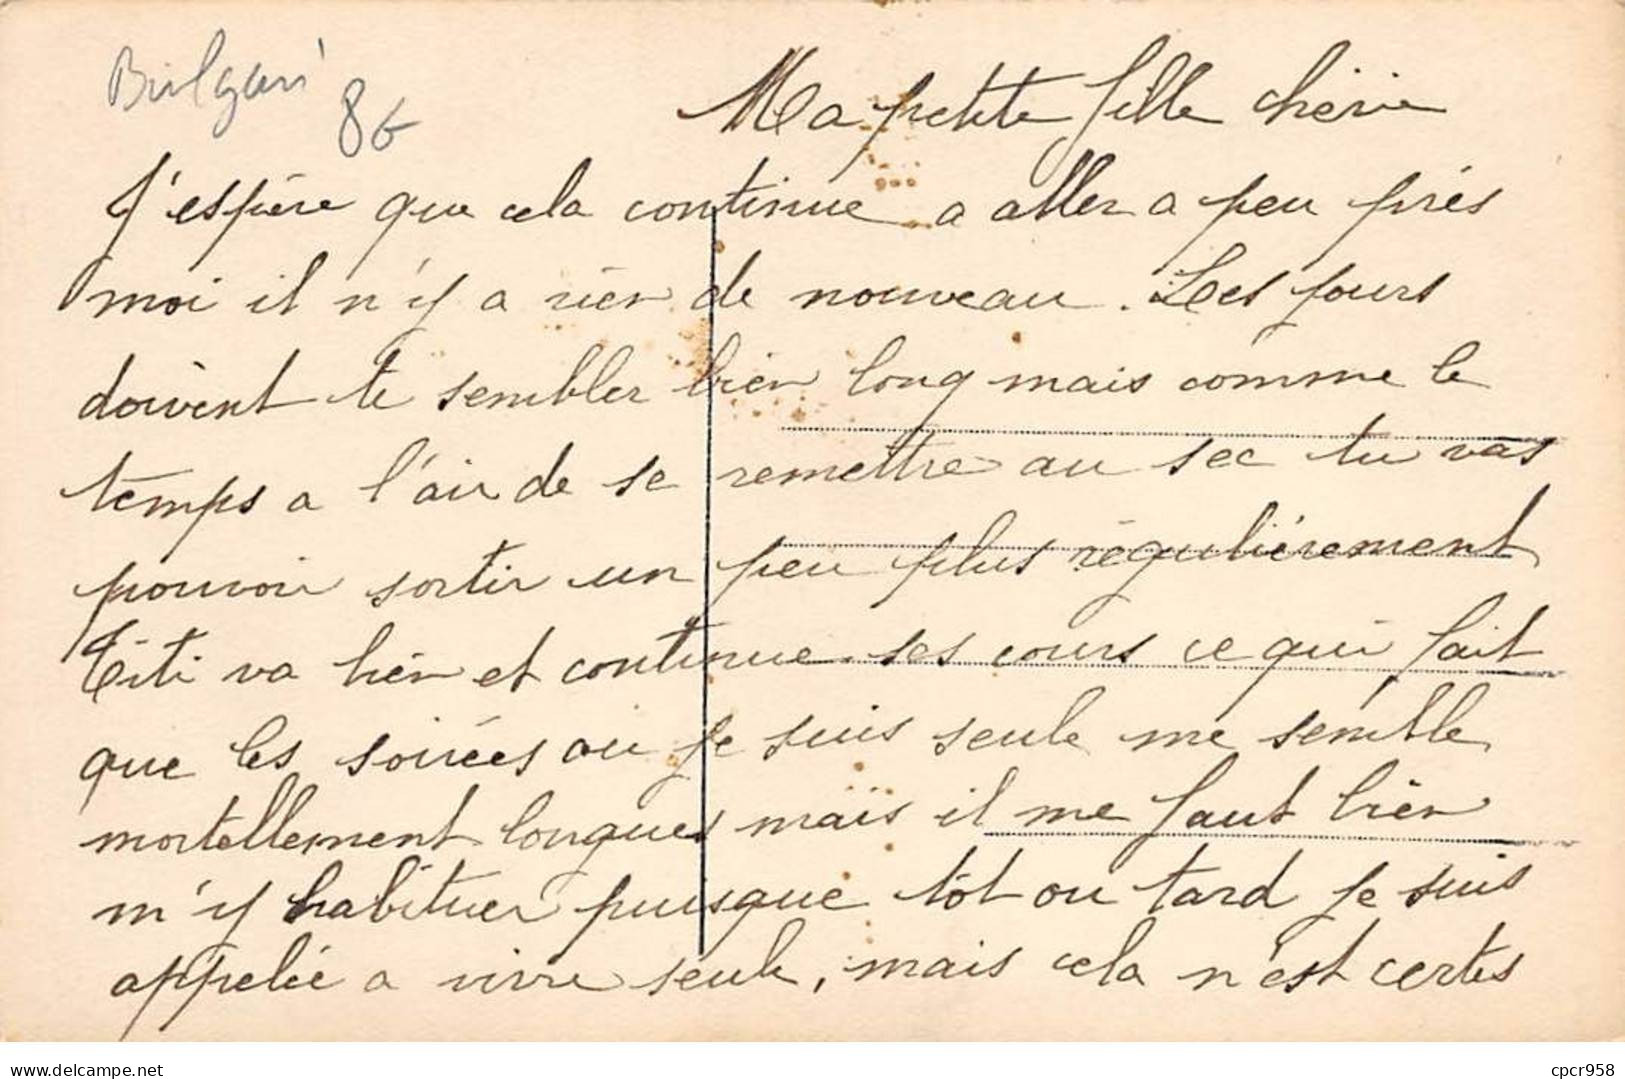 Bulgari
86
Ma petite fille chérie
J'espère que cela continue a aller a peu près
moi il n'y a rien de nouveau. Les jours
doivent te sembler bien long mais comme le
temps a l'air de se remettre au sec tu vas
pouvoir sortir un peu plus régulièrement
Titi va bien et continue ses cours ce qui fait
que les soirées ou je suis seule me semble
mortellement longues mais il me faut bien
m'y habituer puisque tôt ou tard je suis
appelée a vivre seule, mais cela n'est certes
delcampe.net
cpcr958